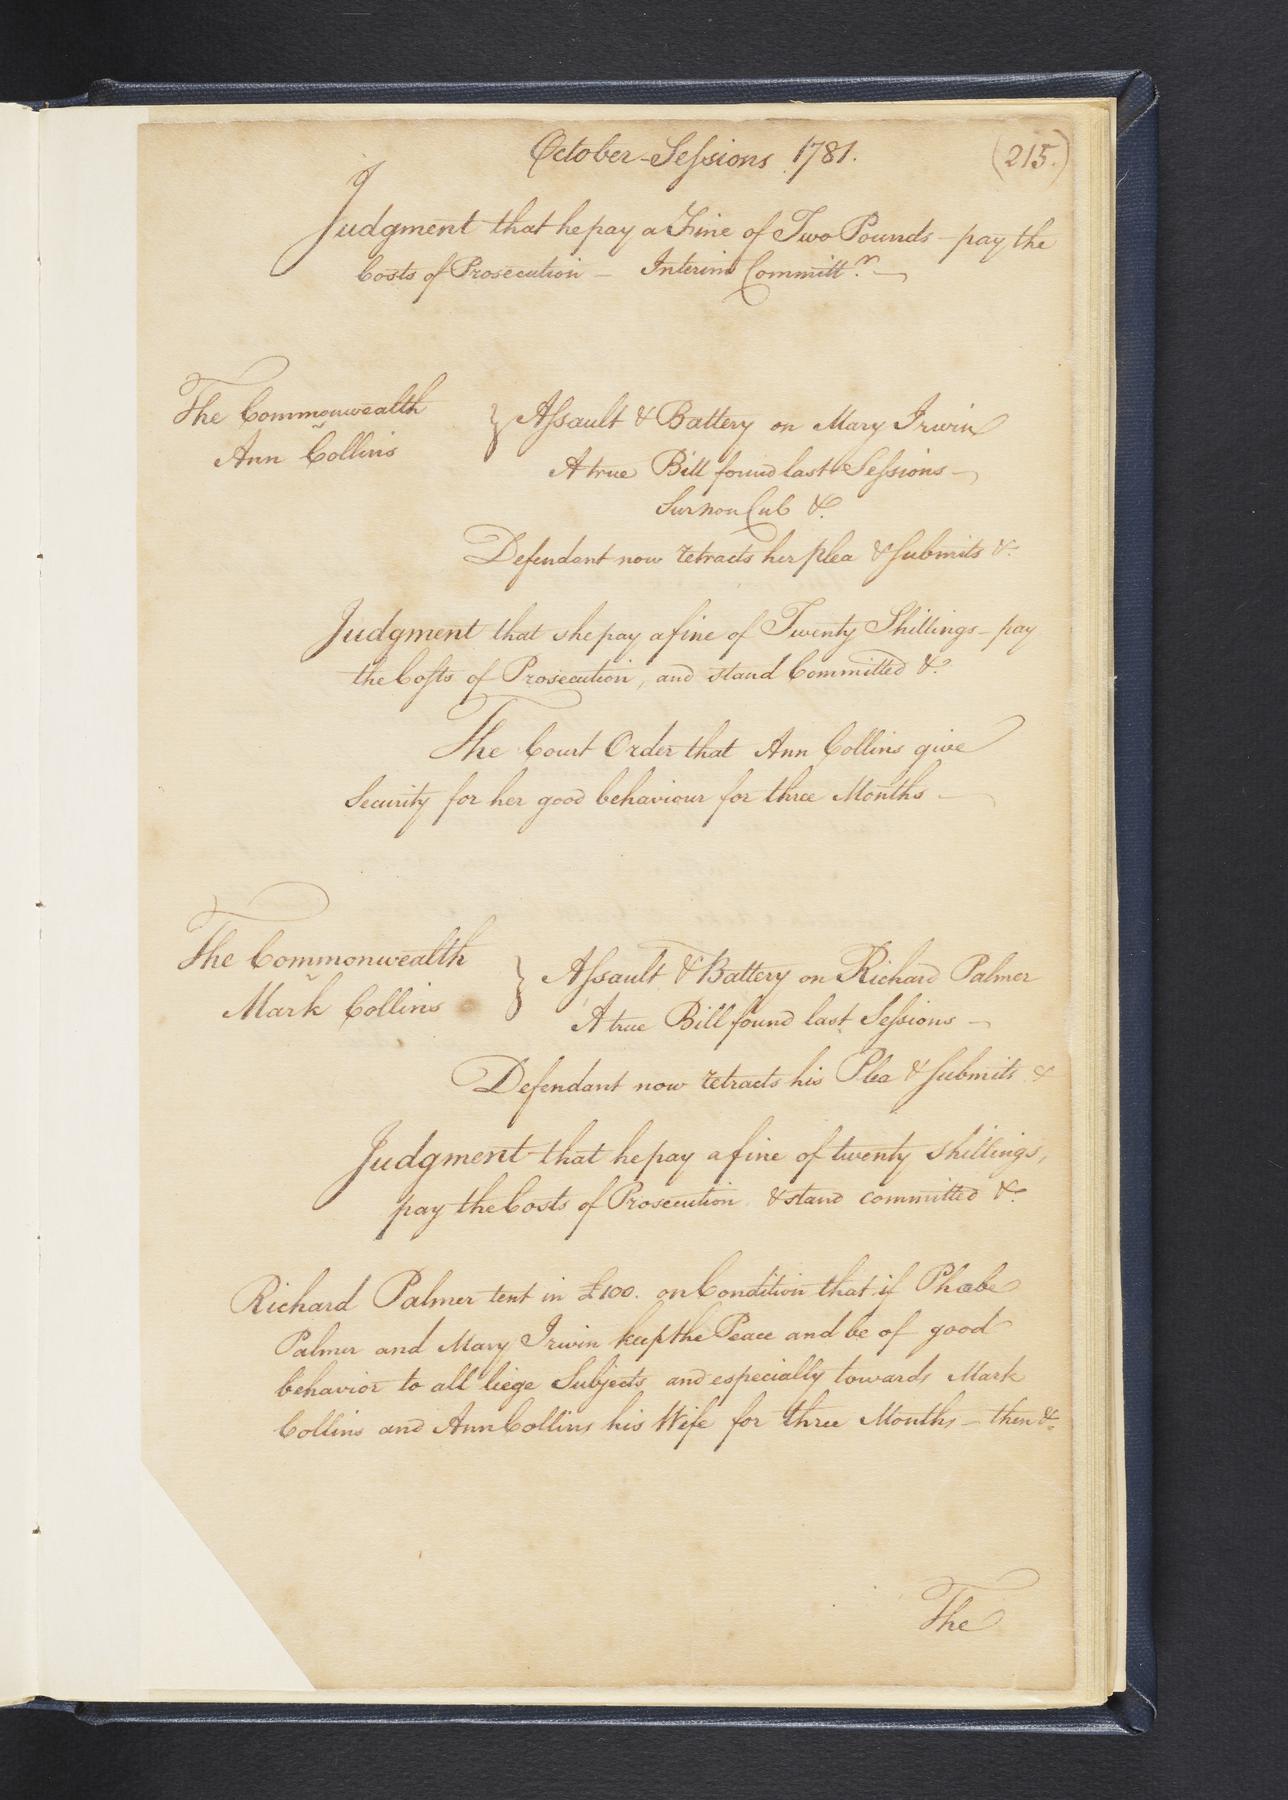 October Sessions 1781.
(215.)
Judgment that he pay a Fine of Two Pounds - pay the
Costs of Prosecution - Interim Committ.r -
The Commonwealth
v
Ann Collins
} Assault & Battery on Mary Irwin
A true Bill found last Sessions -
Sur non Cul &c.
Defendant now retracts her plea & submits &c.
Judgment that she pay a fine of Twenty Shillings - pay
the Costs of Prosecution, and stand Committed &c.
The Court Order that Ann Collins give
Security for her good behaviour for three Months -
The Commonwealth
v
Mark Collins
} Assault & Battery on Richard Palmer
A true Bill found last Sessions -
Defendant now retracts his Plea & submits &
Judgment that he pay a fine of twenty shillings,
pay the Costs of Prosecution & stand committed &c.
Richard Palmer tent in £100. on Condition that if Phœbe
Palmer and Mary Irwin keep the Peace and be of good
behavior to all liege Subjects and especially towards Mark
Collins and Ann Collins his Wife for three Months - then &c.
The